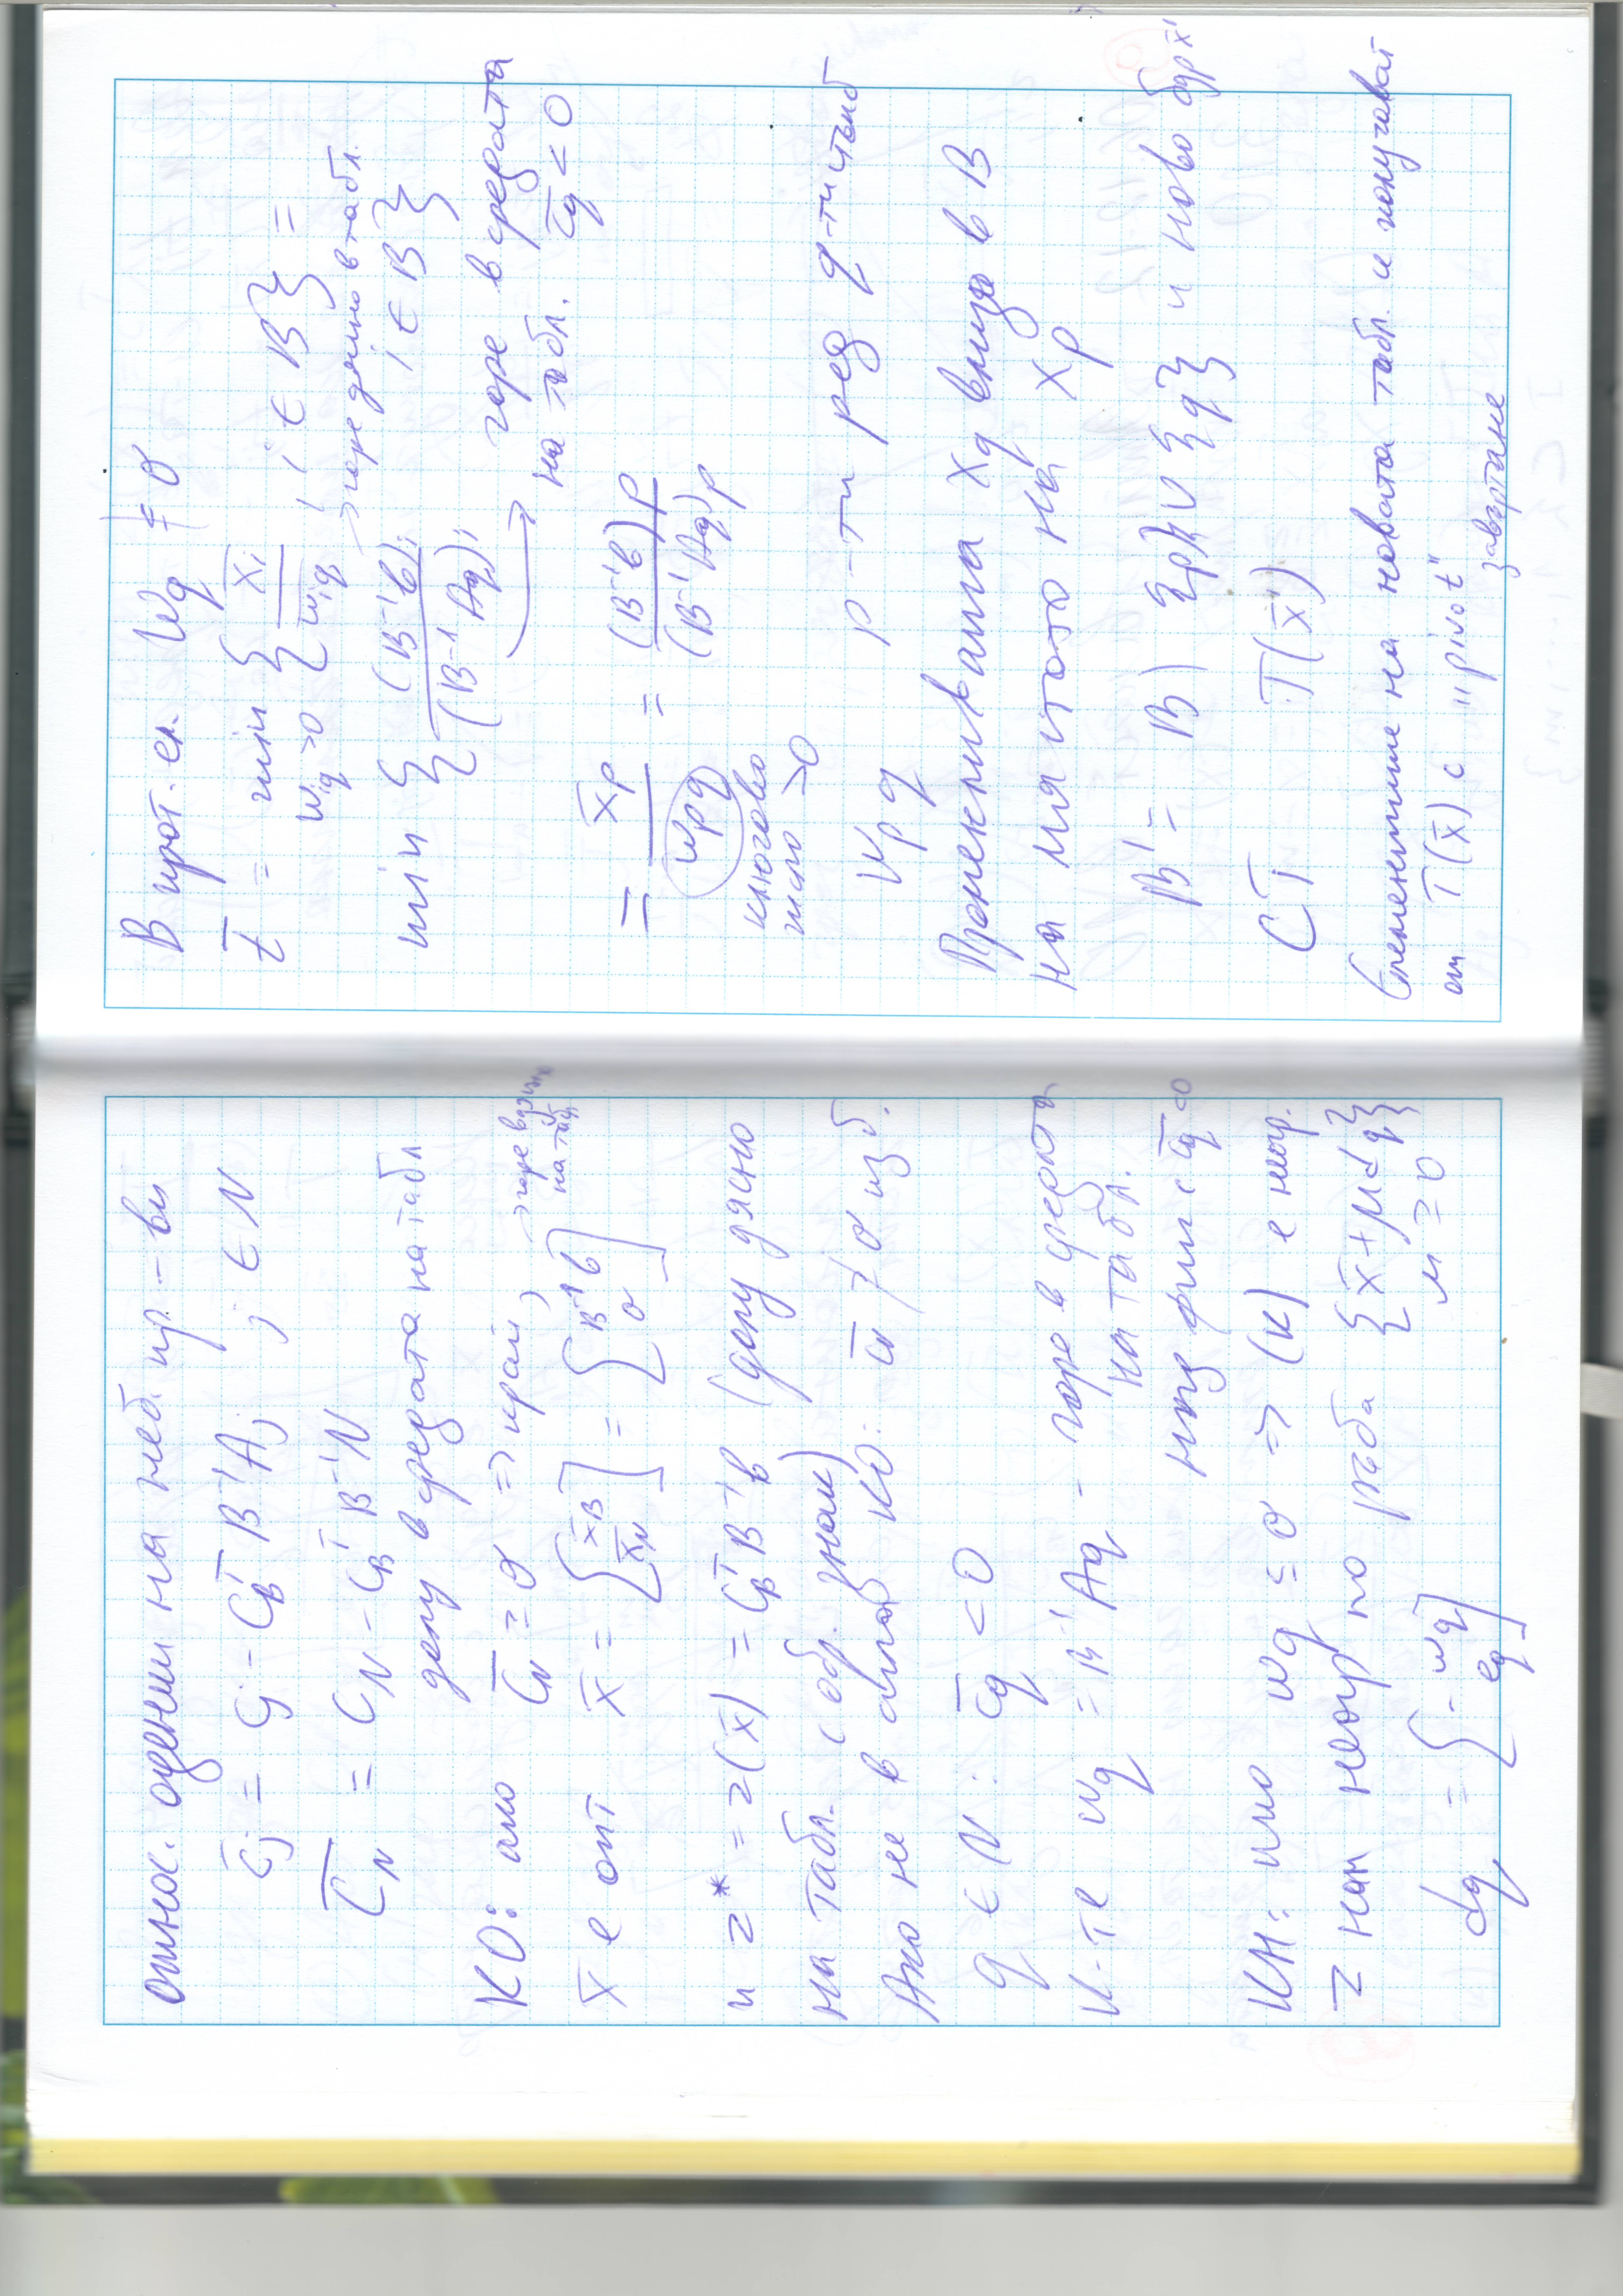 относ. оценки на неб. пр-ви
c̄j = cj - cBᵀ B⁻¹Aj, j ∈ N
c̄N = cN - cBᵀ B⁻¹N
долу в средата на табл
КО: ако c̄N ≥ 0 ⇒ край,
x̄ е опт x̄ = [x̄B x̄N] = [B⁻¹b 0] → горе вдясно на табл
и z* = z(x̄) = cBᵀB⁻¹b (долу дясно
на табл. с обр. знак)
Ако не в КО: c̄N ≱ 0 изб.
q ∈ N: c̄q < 0
К-те wq = B⁻¹Aq - горе в средата
на табл.
над c̄q<0
КН: ако wq ≤ 0 ⇒ (К) е неогр.
z нам неогр по ръба {x̄+μdq}
μ ≥ 0
dq = [-wq eq]
В прот. сл. wq ≰ 0
t̄ = min { x̄i / wiq , i ∈ B } =
wiq >0 → горе дясно в табл.
min { (B⁻¹b)i / (B⁻¹Aq)i , i ∈ B }
→ горе в средата
на табл. c̄q < 0
= x̄p / wpq = (B⁻¹b)p / (B⁻¹Aq)p
ключово
число >0
wpq р-ти ред q-ти стълб
Променливата xq влиза в B
на мястото на xp
B' = B \ {p} ∪ {q} и ново бдр x̄'
СТ T(x̄')
Елементите на новата табл. и получават
от T(x̄) с "pivot"
завъртане